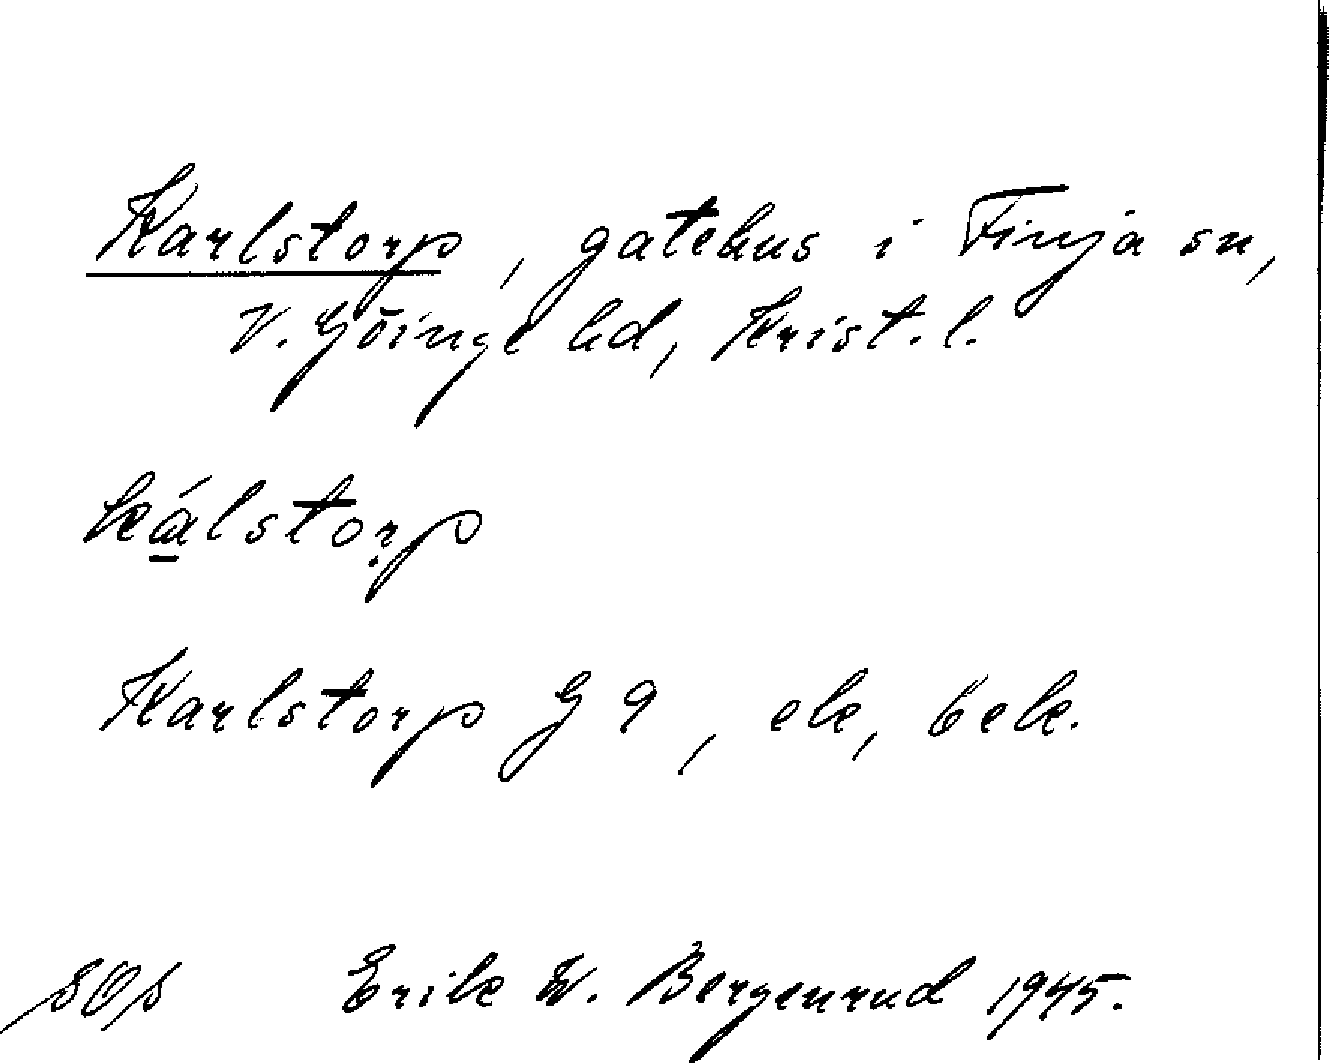 Karlstorp, gatehus i Finja sn,
V. Göinge hd, Krist. l.
kálstorp
Karlstorp G 9, ek, bek.
SOS Erik W. Bergenrud 1945.